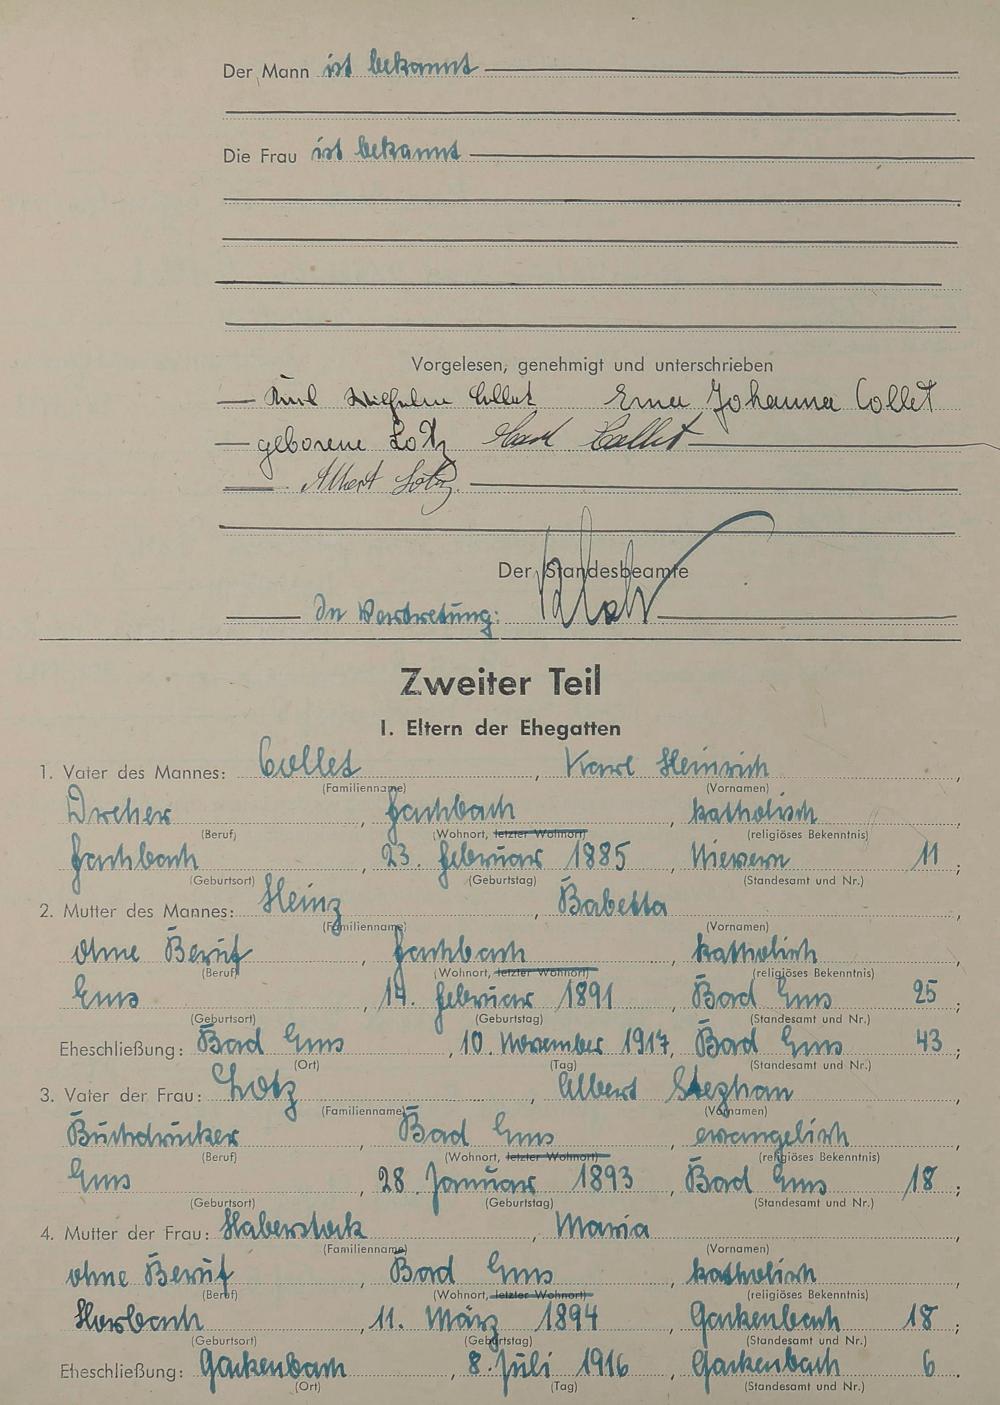 Der Mann ist bekannt
Die Frau ist bekannt
Vorgelesen, genehmigt und unterschrieben
Wilhelm Collet Erna Johanna Collet
geborene Lotz Karl Collet
Albert Lotz
Der Standesbeamte
In Vertretung:
Zweiter Teil
I. Eltern der Ehegatten
1. Vater des Mannes: Collet, Karl Heinrich,
(Familienname) (Vornamen)
Dreher, Fachbach, katholisch
(Beruf) (Wohnort, letzter Wohnort) (religiöses Bekenntnis)
Fachbach, 23. Februar 1885, Nievern 11;
(Geburtsort) (Geburtstag) (Standesamt und Nr.)
2. Mutter des Mannes: Heinz, Babetta,
(Familienname) (Vornamen)
ohne Beruf, Fachbach, katholisch,
(Beruf) (Wohnort, letzter Wohnort) (religiöses Bekenntnis)
Ems, 14. Februar 1891, Bad Ems 25;
(Geburtsort) (Geburtstag) (Standesamt und Nr.)
Eheschließung: Bad Ems, 10. November 1917, Bad Ems 43;
(Ort) (Tag) (Standesamt und Nr.)
3. Vater der Frau: Lotz, Albert Stephan,
(Familienname) (Vornamen)
Buchdrucker, Bad Ems, evangelisch,
(Beruf) (Wohnort, letzter Wohnort) (religiöses Bekenntnis)
Ems, 28. Januar 1893, Bad Ems 18;
(Geburtsort) (Geburtstag) (Standesamt und Nr.)
4. Mutter der Frau: Haberstock, Maria,
(Familienname) (Vornamen)
ohne Beruf, Bad Ems, katholisch,
(Beruf) (Wohnort, letzter Wohnort) (religiöses Bekenntnis)
Horbach, 11. März 1894, Gackenbach 18;
(Geburtsort) (Geburtstag) (Standesamt und Nr.)
Eheschließung: Gackenbach, 8. Juli 1916, Gackenbach 6.
(Ort) (Tag) (Standesamt und Nr.)